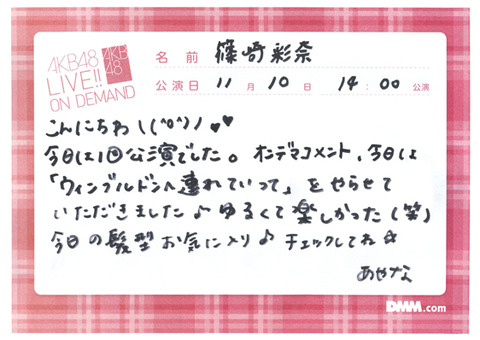 AKB48
LIVE!!
ON DEMAND
AKB
48
名前 篠崎彩奈
公演日 11月10日 14:00 公演
こんにちわ\(^o^)/♥♥
今日は1回公演でした。オンデマコメント、今日は
「ウィンブルドンへ連れていって」をやらせて
いただきました♪ゆるくて楽しかった(笑)
今日の髪型お気に入り♪チェックしてね☆
あやな
DMM.com